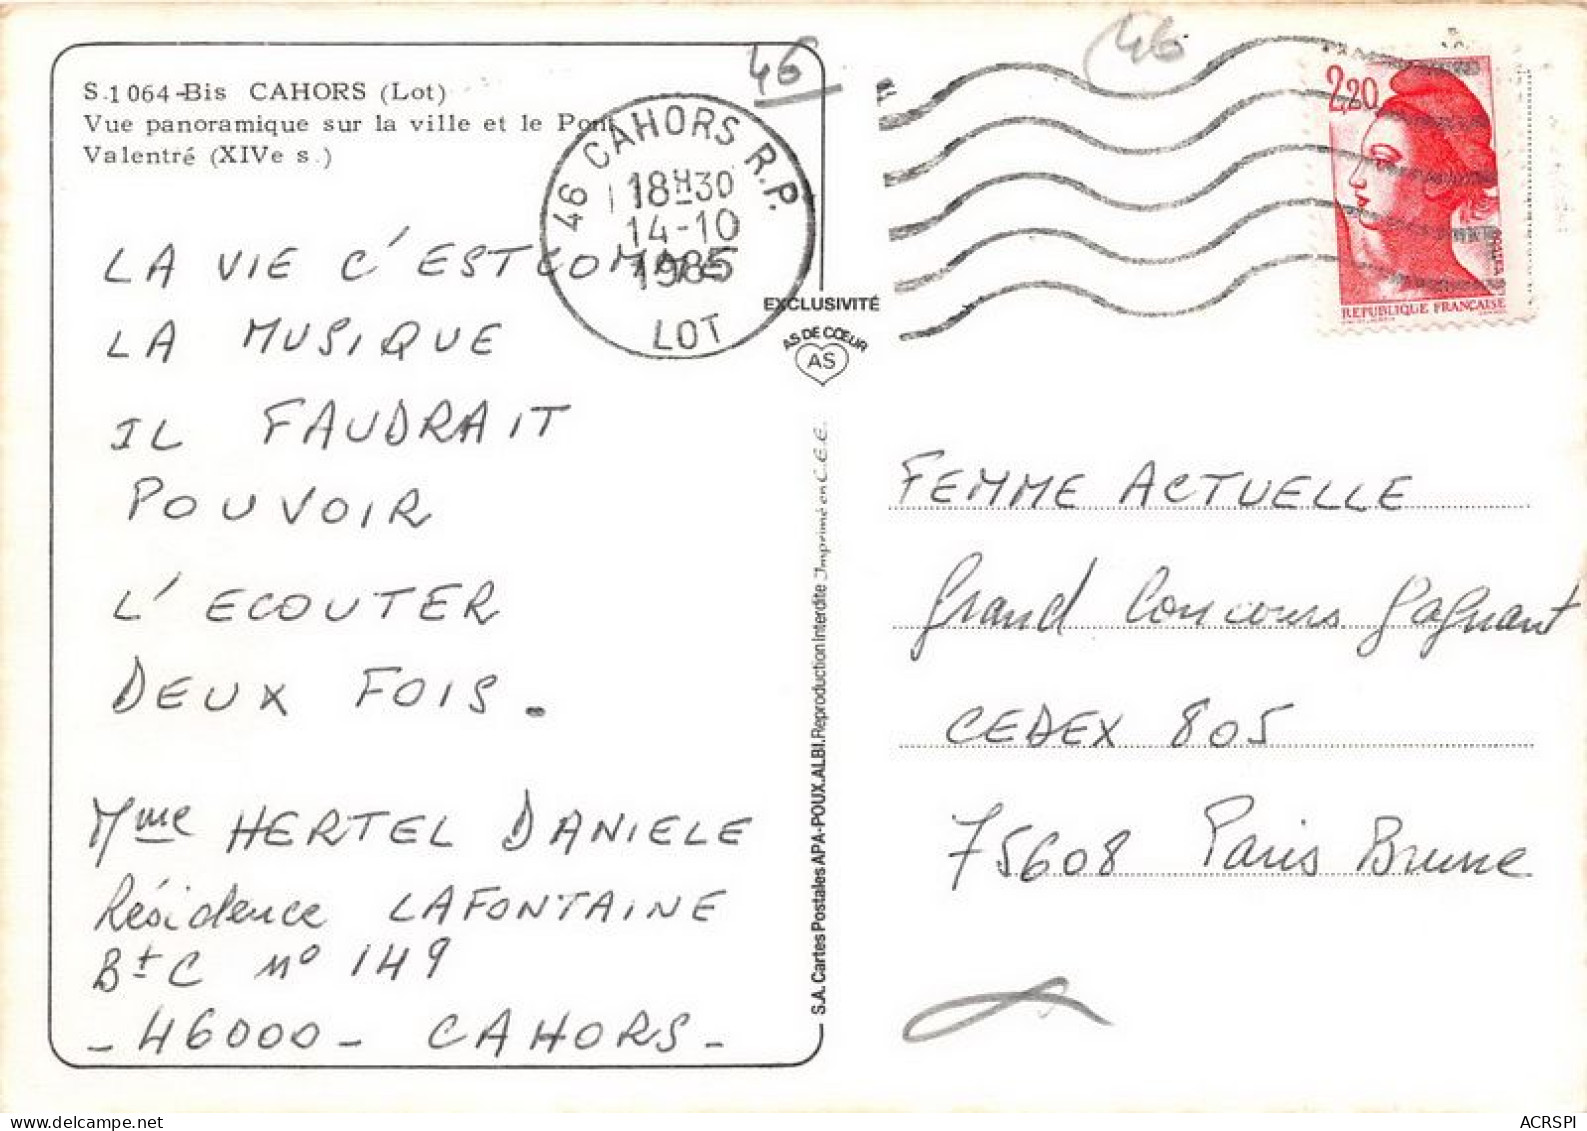 S.1064-Bis CAHORS (Lot)
Vue panoramique sur la ville et le Pont
Valentré (XIVe s.)
46
46
46 CAHORS R.P.
18H30
14-10
1985
LOT
2,20
REPUBLIQUE FRANÇAISE
EXCLUSIVITÉ
AS DE CŒUR
AS
LA VIE C'EST COMME
LA MUSIQUE
IL FAUDRAIT
POUVOIR
L'ECOUTER
DEUX FOIS.
Mme HERTEL DANIELE
Résidence LAFONTAINE
Bt C No 149
- 46000 - CAHORS -
S.A. Cartes Postales APA-POUX.ALBI.Reproduction Interdite Imprimé en C.E.E.
FEMME ACTUELLE
Grand Concours Gagnant
CEDEX 805
75608 Paris Brune
ACRSPI